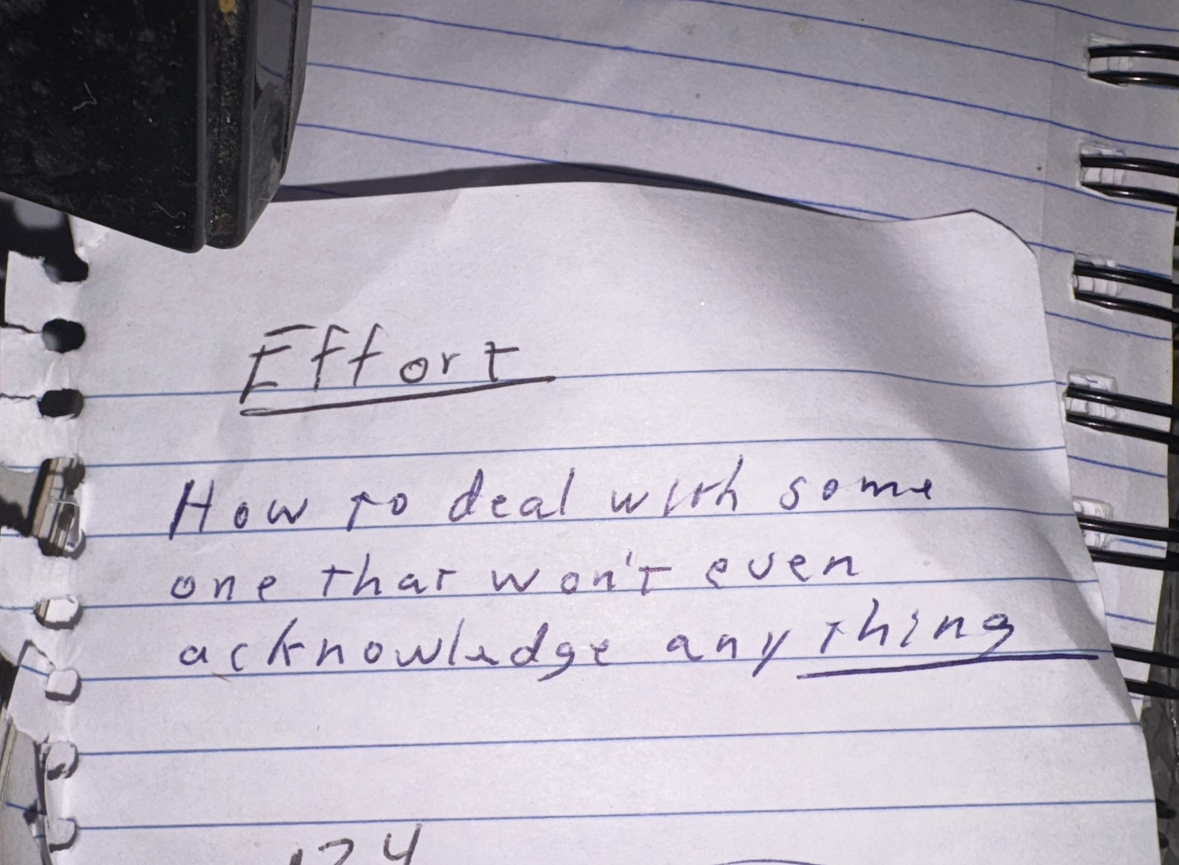 Effort
How to deal with some
one that won't even
acknowledge any thing
124